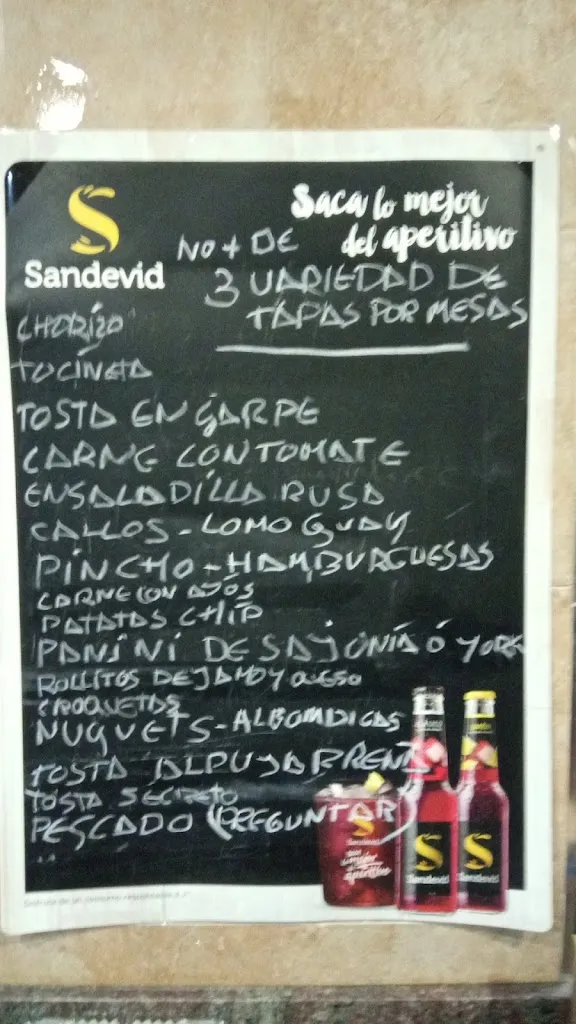 Saca lo mejor
del aperitivo
Sandevid
NO + DE
3 VARIEDAD DE
TAPAS POR MESAS
CHORIZO
TOCINETA
TOSTA EN GARPE
CARNE CON TOMATE
ENSALADILLA RUSA
CALLOS - LOMO GUAY
PINCHO - HAMBURGUESAS
CARNE CON AJOS
PATATAS CHIP
PANINI DE SAJONIA Ó YORK
ROLLITOS DE JAMO Y QUESO
CROQUETAS
NUGUETS - ALBOMDIGAS
TOSTA ALPUJARREÑA
TOSTA SECRETO
PESCADO (PREGUNTAR)
Sandevid
Sandevid